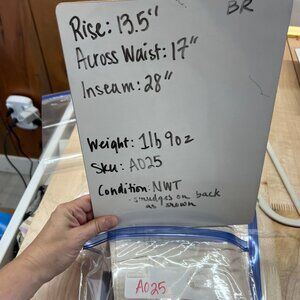 BR
Rise: 13.5"
Across Waist: 17"
Inseam: 28"
Weight: 1lb 9oz
Sku: A025
Condition: NWT
- smudges on back
as shown
A025